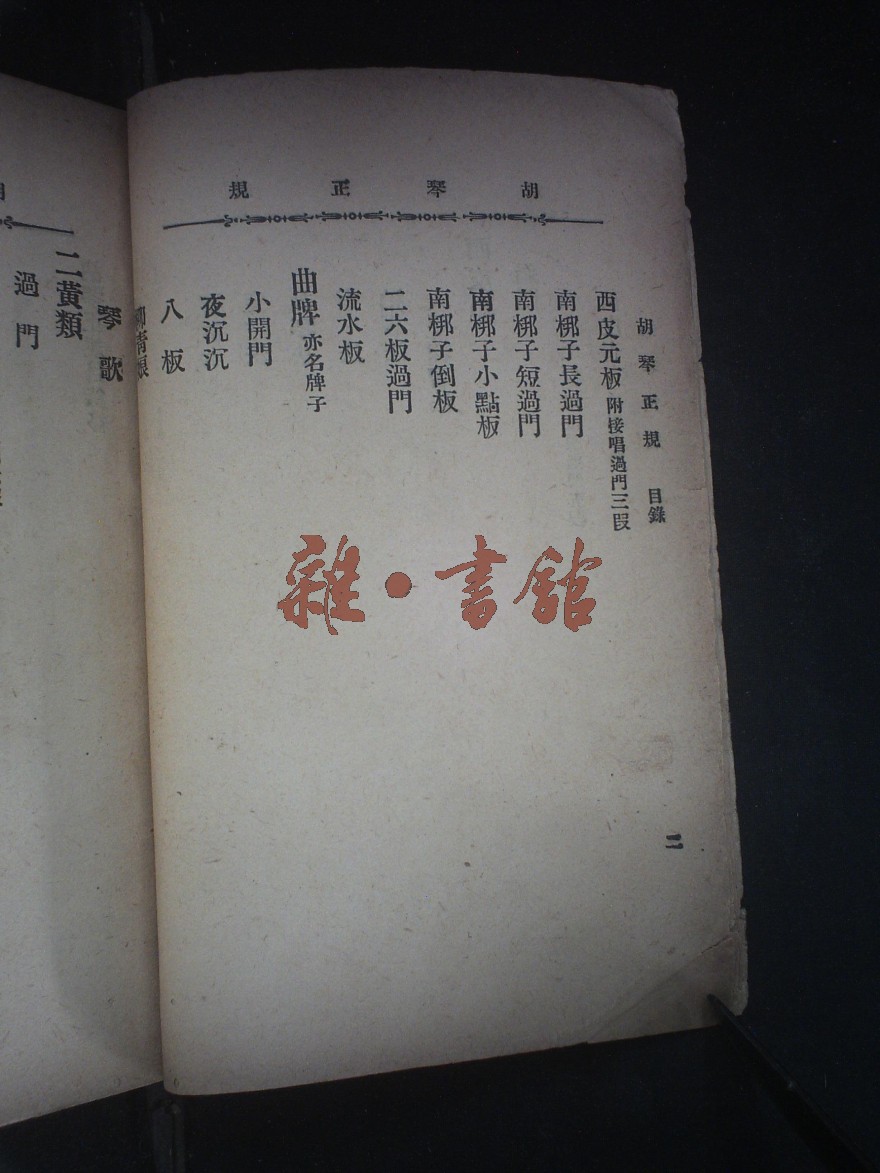 胡琴正規
胡琴正規 目錄
西皮元板 附接唱過門三段
南梆子長過門
南梆子短過門
南梆子小點板
南梆子倒板
二六板過門
流水板
曲牌 亦名牌子
小開門
夜沉沉
八板
琴歌
二黃類
過門
二
雜·書館